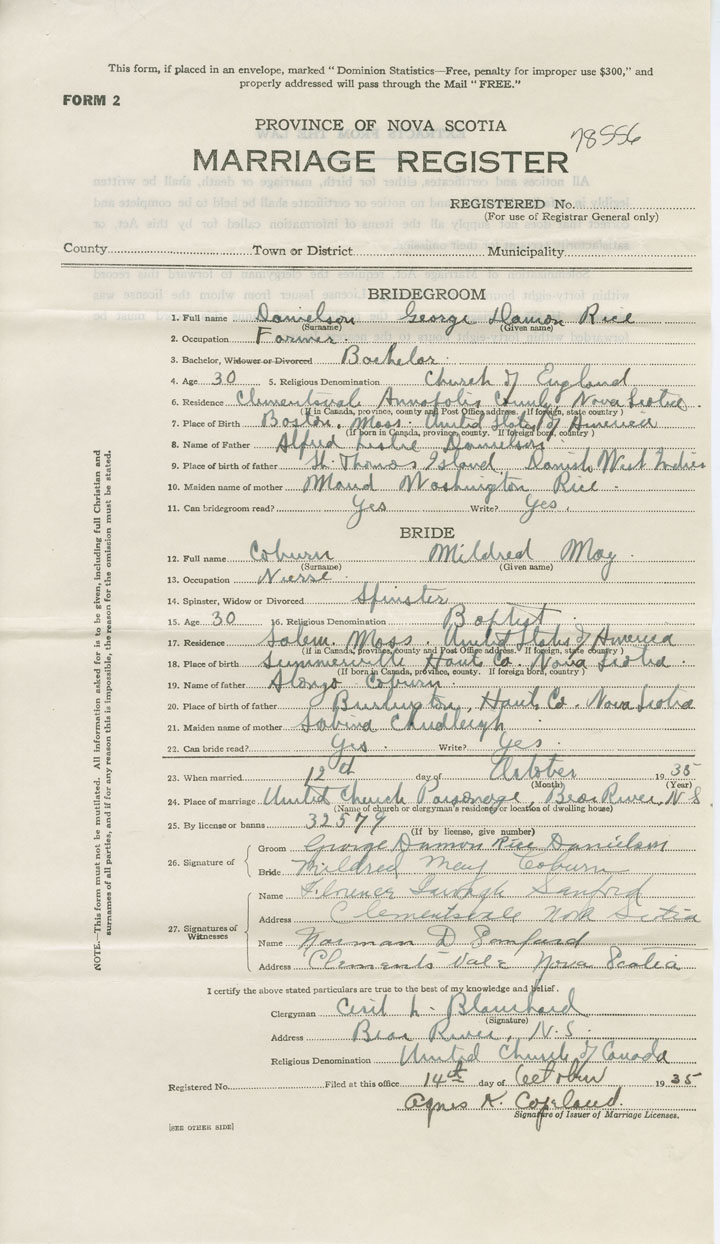 This form, if placed in an envelope, marked "Dominion Statistics—Free, penalty for improper use $300," and
properly addressed will pass through the Mail "FREE."
FORM 2
PROVINCE OF NOVA SCOTIA
78556
MARRIAGE REGISTER
REGISTERED No.
(For use of Registrar General only)
County Town or District Municipality
BRIDEGROOM
1. Full name Danielson George Damon Rice
(Surname) (Given name)
2. Occupation Farmer.
3. Bachelor, Widower or Divorced Bachelor.
4. Age 30 5. Religious Denomination Church of England
6. Residence Clementsvale Annapolis County, Nova Scotia.
(If in Canada, province, county and Post Office address. If foreign, state country)
7. Place of Birth Boston, Mass. United States of America
(If born in Canada, province, county. If foreign born, country)
8. Name of Father Alfred Leslie Danielson
9. Place of birth of father St. Thomas Island, Danish West Indies
10. Maiden name of mother Maud Washington Rice.
11. Can bridegroom read? Yes Write? Yes.
BRIDE
12. Full name Coburn Mildred May.
(Surname) (Given name)
13. Occupation Nurse.
14. Spinster, Widow or Divorced Spinster
15. Age 30 16. Religious Denomination Baptist.
17. Residence Salem. Mass. United States of America
(If in Canada, province, county and Post Office address. If foreign, state country)
18. Place of birth Summerville Hants Co. Nova Scotia.
(If born in Canada, province, county. If foreign born, country)
19. Name of father Alonzo Coburn.
20. Place of birth of father Burlington, Hants Co. Nova Scotia
21. Maiden name of mother Lavina Chudleigh.
22. Can bride read? Yes. Write? Yes.
23. When married 12th day of October 1935
(Month) (Year)
24. Place of marriage United Church Parsonage, Bear River, N.S.
(Name of church or clergyman's residence or location of dwelling house)
25. By license or banns 32579
(If by license, give number)
26. Signature of Groom George Damon Rice Danielson
Bride Mildred May Coburn
27. Signatures of Witnesses
Name Florence Sanford
Address Clementsvale Nova Scotia
Name Norman D Sanford
Address Clements Vale Nova Scotia
I certify the above stated particulars are true to the best of my knowledge and belief.
Clergyman Cecil L. Blanchard
(Signature)
Address Bear River, N.S.
Religious Denomination United Church of Canada
Registered No. Filed at this office 14th day of October 1935
Agnes K. Copeland.
Signature of Issuer of Marriage Licenses.
[SEE OTHER SIDE]
NOTE.—This form must not be mutilated. All information asked for is to be given, including full Christian and
surnames of all parties, and if for any reason this is impossible, the reason for the omission must be stated.